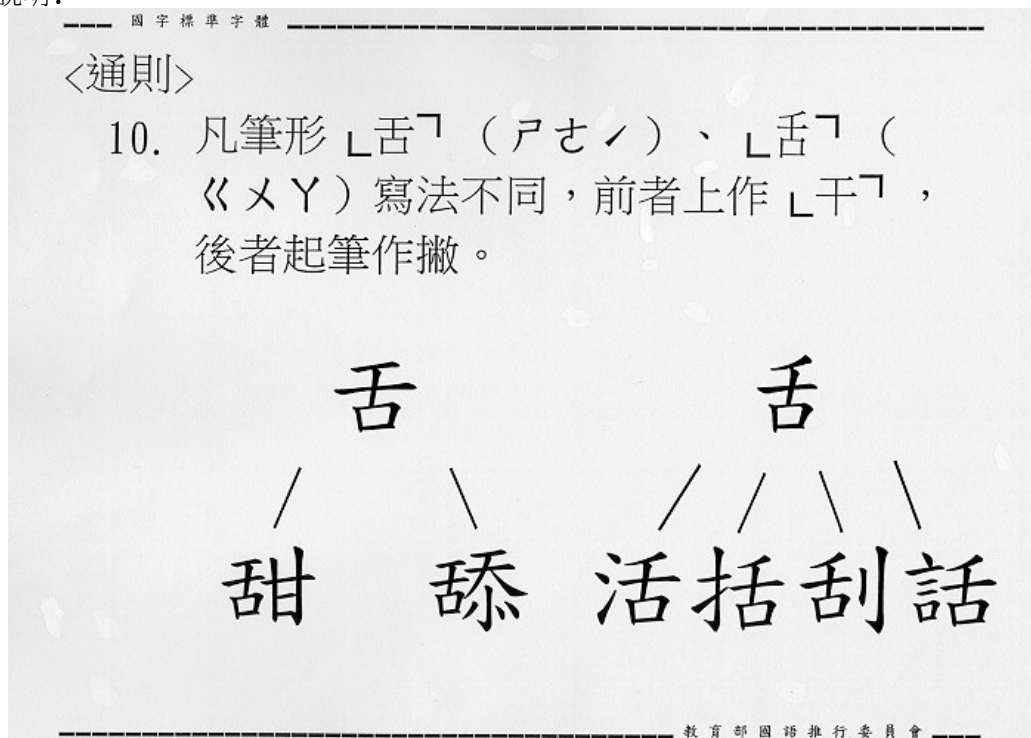 說明:
國字標準字體
<通則>
10. 凡筆形「舌」（ㄕㄜˊ）、「舌」（
ㄍㄨㄚ）寫法不同，前者上作「干」，
後者起筆作撇。
舌 舌
甜 舔 活括刮話
教育部國語推行委員會